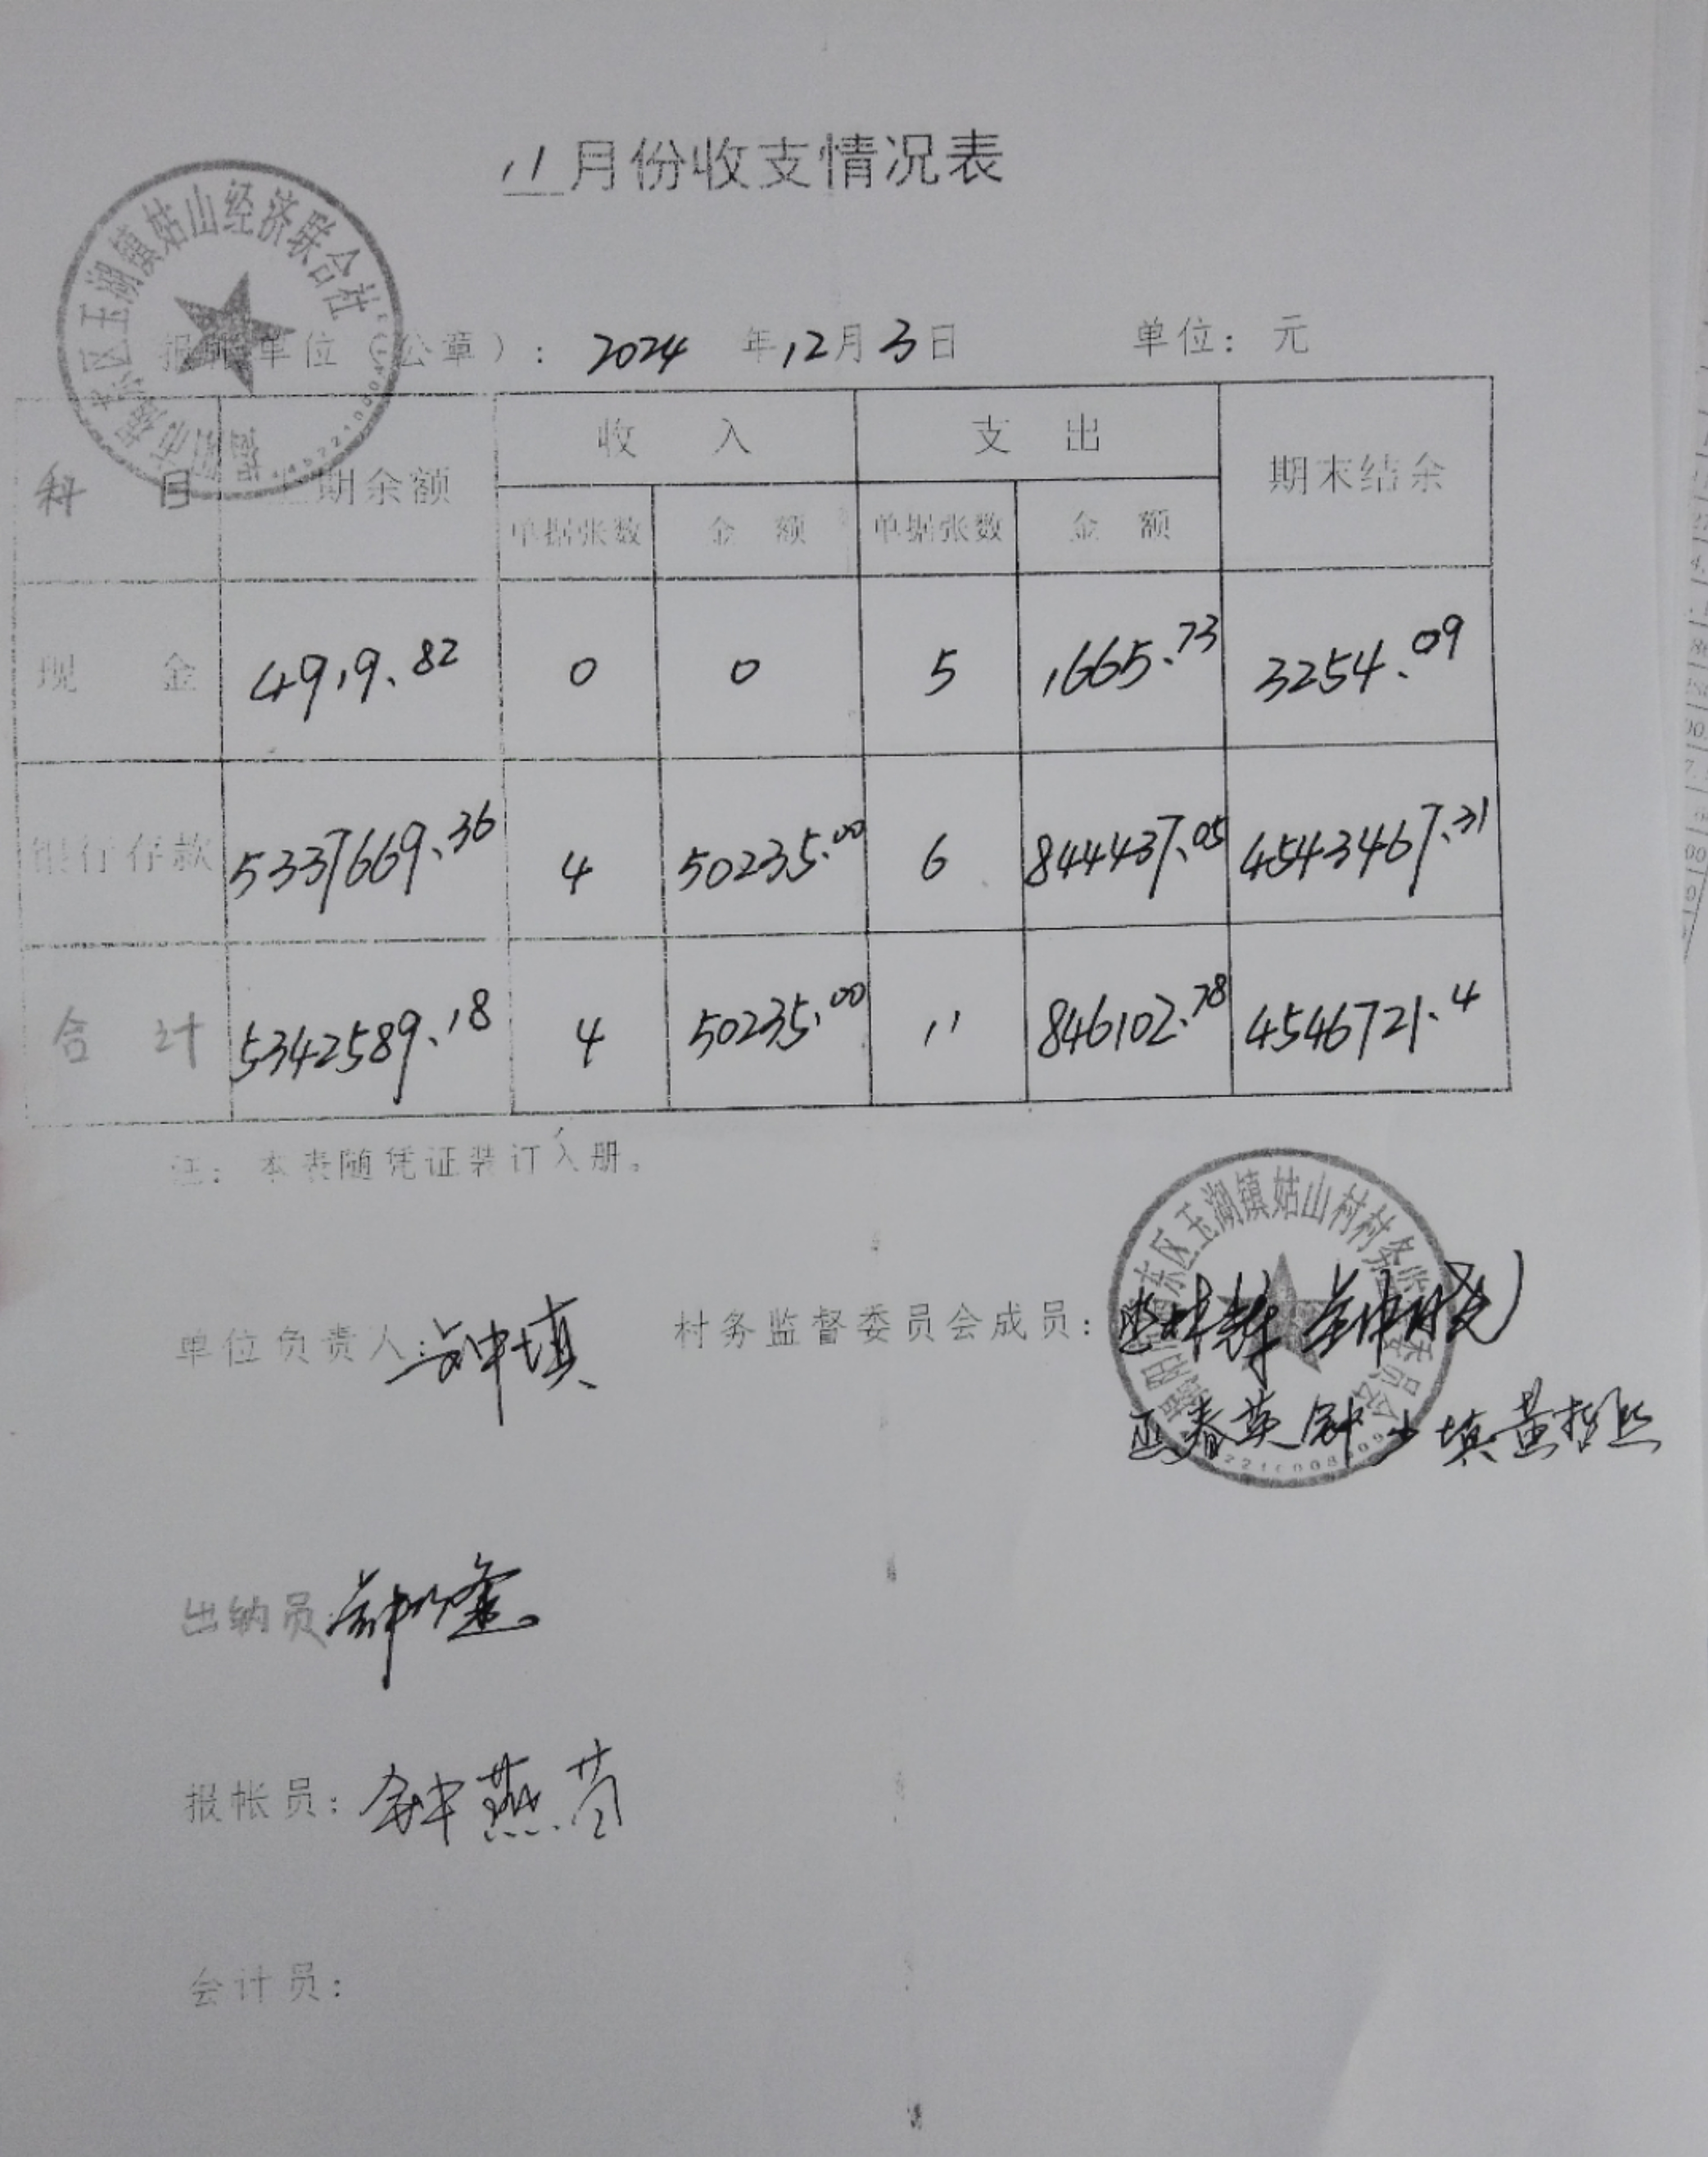 11月份收支情况表
玉湖镇姑山经济联合社
报账单位（公章）： 2024 年12月3日 单位：元
科 目 上期余额 收 入 支 出 期末结余
单据张数 金 额 单据张数 金 额
现 金 4919.82 0 0 5 1665.73 3254.09
银行存款 5337669.36 4 50235.00 6 844437.05 4543467.31
合 计 5342589.18 4 50235.00 11 846102.78 4546721.4
注：本表随凭证装订入册。
东区玉湖镇姑山村村务监督委员会
单位负责人： 村务监督委员会成员：
出纳员
报帐员：
会计员：